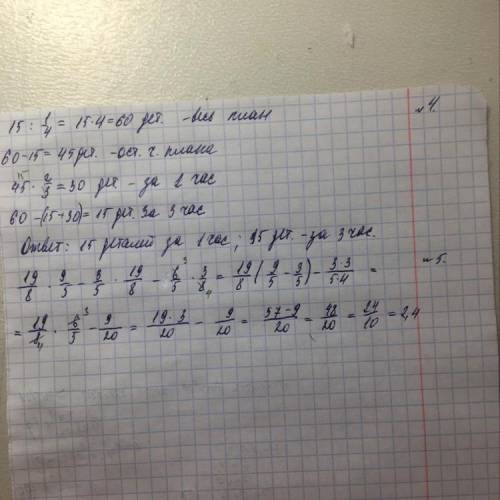 № 4.
15 : 1/4 = 15·4 = 60 дет. - весь план
60-15 = 45 дет. - ост. ч. плана
45 · 2/3 = 30 дет - за 2 час
60-(15+30) = 15 дет. за 3 час
Ответ: 15 деталей за 1 час; 15 дет. - за 3 час.
№ 5.
19/8 · 9/5 - 3/5 · 19/8 - 6/5 · 3/8 = 19/8 (9/5 - 3/5) - 3·3/5·4 =
= 19/8 · 6/5 - 9/20 = 19·3/20 - 9/20 = 57-9/20 = 48/20 = 24/10 = 2,4